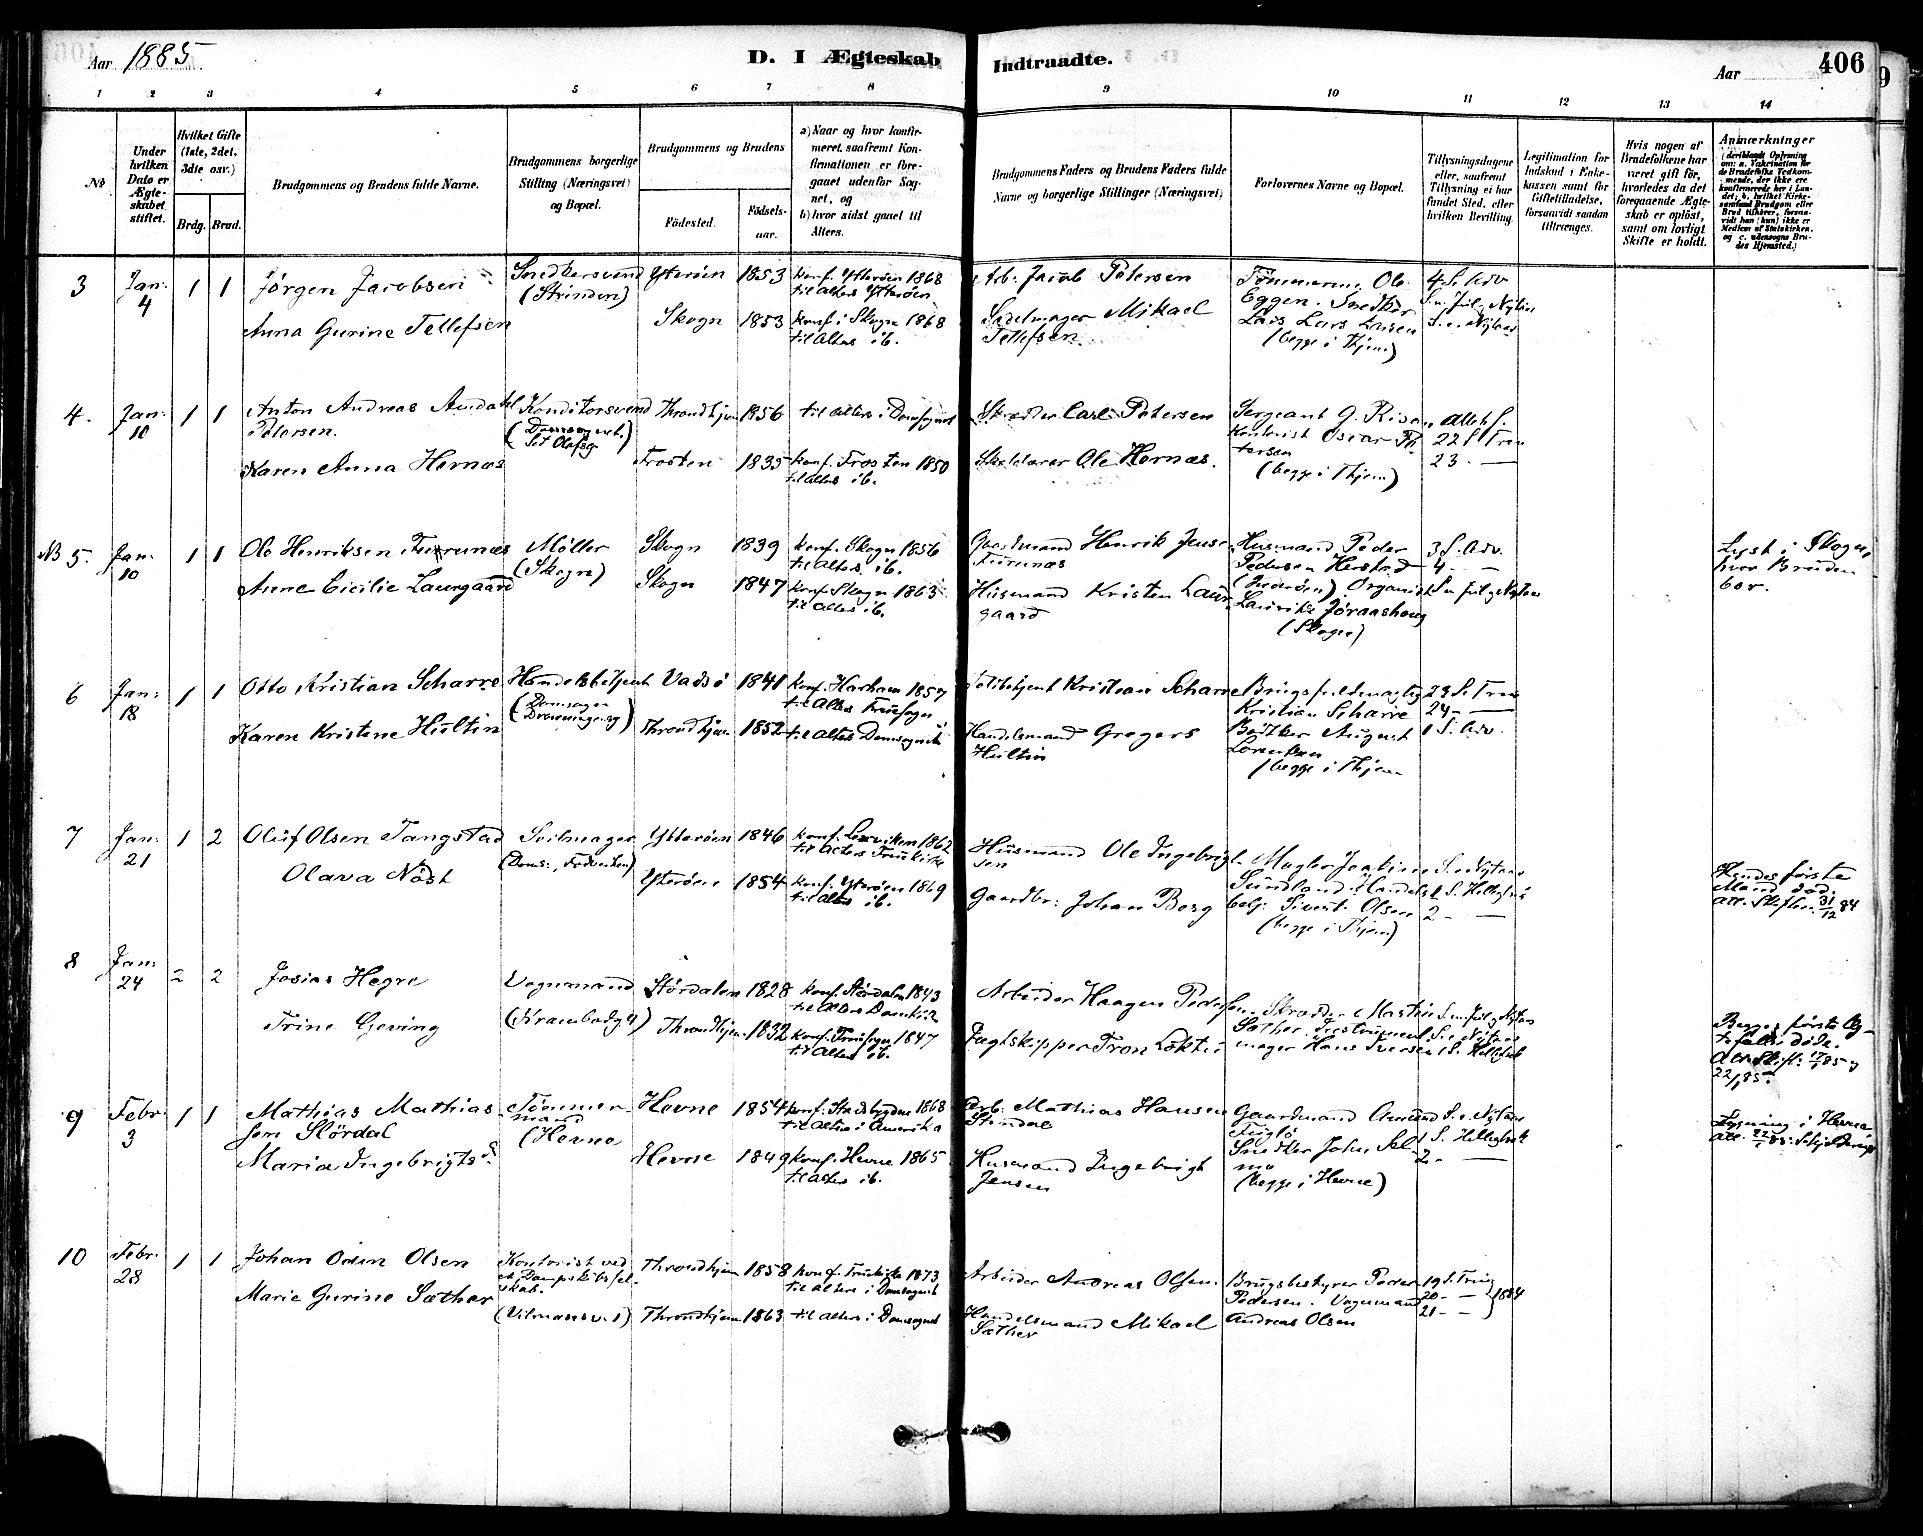 Aar 1885
D. I Ægteskab Indtraadte.
Aar
406
1 2 3 4 5 6 7 8 9 10 11 12 13 14
No
Under hvilken Dato er Ægteskabet stiftet.
Hvilket Gifte (1ste, 2det, 3die osv.)
Brdg. Brud.
Brudgommens og Brudens fulde Navne.
Brudgommens borgerlige Stilling (Næringsvei) og Bopæl.
Brudgommens og Brudens
Fødested. Fødselsaar.
a) Naar og hvor konfirmeret, saafremt Konfirmationen er foregaaet udenfor Sognet, og
b) hvor sidst gaaet til Alters.
Brudgommens Faders og Brudens Faders fulde Navne og borgerlige Stillinger (Næringsvei)
Forlovernes Navne og Bopæl.
Tillysningsdagene eller, saafremt Tillysning ei har fundet Sted, efter hvilken Bevilling.
Legitimation for Indskud i Enkekassen samt for Giftetilladelse, forsaavidt saadan tiltrænges.
Hvis nogen af Brudefolkene har været gift før, hvorledes da det foregaaende Ægteskab er opløst, samt om lovligt Skifte er holdt.
Anmærkninger
(deriblandt Oplysning om: a. Vakcination for de Brudefolks Vedkommende, der ikke ere konfirmerede her i Landet; b. hvilket Kirkesamfund Brudgom eller Brud tilhører, forsaavidt han (hun) ikke er Medlem af Statskirken, og c. udensogns Brudes Hjemsted.)
3 Jan: 4 1 1
Jørgen Jacobsen
Anna Gurine Tellefsen
Snedkersvend
(Strinden)
Ytterøen 1853
Skogn 1853
Konf. Ytterøen 1868
til Alters Ytterøen
Konf. i Skogn 1868
til Alters ib.
Arb: Jacob Petersen
Sadelmager Mikael
Tellefsen
Tømmerm. Ole
Eggen. Snedker
Lars Larsen
(begge i Thjem)
4 S. Adv
S. m. Jul og Nytaar
S. e. Nytaar
4. Jan: 10 1 1
Anton Andreas Amdahl
Petersen.
Karen Anna Hernæs
Konditorsvend
(Domsognet.
Sct Olafsg
Throndhjem 1856
Frosten 1835
til Alters i Domsognet
Konf. Frosten 1850
til Alters ib.
Skrædder Carl Petersen
Ole Hernæs.
Sergeant G. Risan
Kontorist Oscar Petersen
(begge i Thjem)
Alleh S.
22 S. Tren
23 - —
NB 5. Jan. 10 1 1
Ole Henriksen Furunæs
Anne Cicilie Laurgaard
Møller
(Skogn)
Skogn 1839
Skogn 1847
Konf. Skogn 1856
til Alters ib.
Konf. Skogn 1863
til Alters ib.
Gaardmand Henrik Jense
Furunæs
Husmand Kristen Laur
gaard
Husmand Peder
Pedersen Herstad
(Inderøen). Organist
(Skogn)
3 S. Adv.
4 - -
S. m Jul og Nytaar
Lyst i Skogn,
hvor Bruden
bor.
6 Jan: 18 1 1
Otto Kristian Scharre
Karen Kristine Hultin
Handelsbetjent
(Domsogn
Dronningensg)
Vadsø 1841
Throndhjem 1852
Konf. Harham 1857
til Alters Fruesogn
til Alters Domsognet
Toldbetjent Kristian Scharre
Handelsmand Gregers
Hultin
Brugsfuldmægtig
Kristian Scharre
Bødker August
Lorentzen
(begge i Thjem
23 S. Tren
24 - —
1 S. Adv.
7 Jan: 21 1 2
Oluf Olsen Tangstad
Olava Näst
Seilmager
Ytterøen 1846
Ytterøen 1854
Konf. Lexviken 1862
til Alters Fruekirke
Konf. Ytterøen 1869
til Alters ib.
Husmand Ole Ingebrigt
sen
Gaardbr: Johan Borg
Mægler Joakim
Sundland. Handels
betj: Sivert Olsen
(begge i Thjem)
S. e Nytaar
1 S. Hellig
2 - —
Hendes første
Mand død.
Att. Skiftem. 31/12 84
8 Jan: 24 2 2
Josias Hegre
Trine Geving
Vognmand
(Krambodg 4)
Størdalen 1828
Throndhjem 1832
Konf. Størdalen 1843
til Alters Domkirk
Konf. Fruesogn 1847
til Alters ib.
Arbeider Haagen Peder
sen
Jægtskipper Tron
Skrædder Martin
Sæther, Instrument
mager Hans Iversen
S. m. Jul og Nytaar
S. e. Nytaar
1 S. Hellig
Begges første Æg-
tefæller døde.
Att. Skift:
22/1 85.
9 Febr 3 1 1
Mathias Mathias
sen Slördal
Maria Ingebrigtsd.
Tömmer
mand
(Hevne
Hevne 1854
Hevne 1849
Konf. Stadsbygden 1868
til Alters i Amerika
Konf. Hevne 1865
til Alters ib.
Arb: Mathias Hansen
Husmand Ingebrigt
Jensen
Gaardmand
Snedker John Sel
(begge i Hevne)
S. e. Nytaar
1 S. Hellig
2 - —
Lysning i Hevne
10 Febr. 28 1 1
Johan Odin Olsen
Marie Gurine Sæther
Kontorist ved
et Dampskibssel-
skab.
Throndhjem 1858
Throndhjem 1863
Konf. Fruekirke 1873
til Alters i Domsognet
til Alters i Domsognet
Arbeider Andreas Olsen.
Handelsmand Mikael
Sæther
Brugsbestyrer Peder
Pedersen. Vognmand
Andreas Olsen
19 S. Trin
20 - -
21 - -
1884